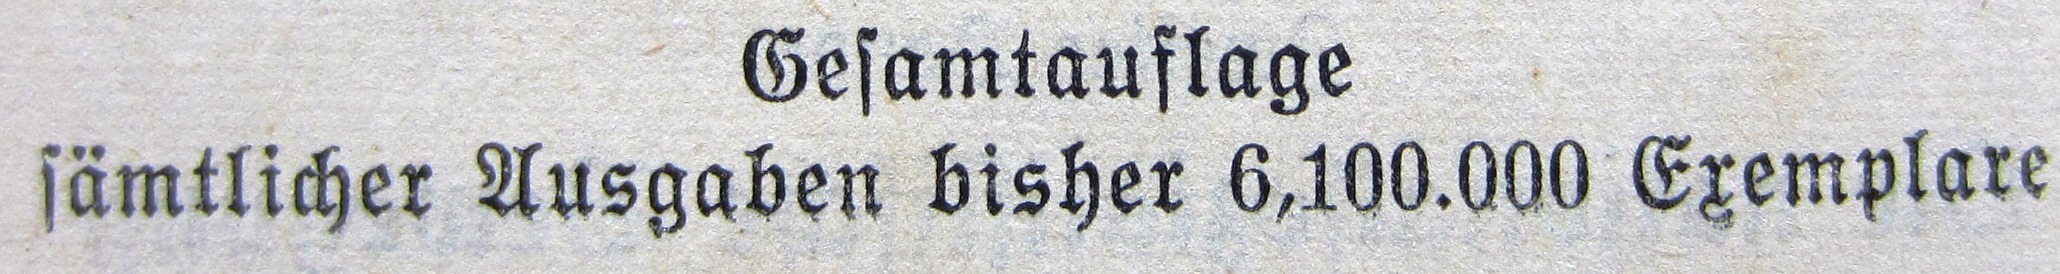 Geſamtauflage
ſämtlicher Ausgaben bisher 6,100.000 Exemplare